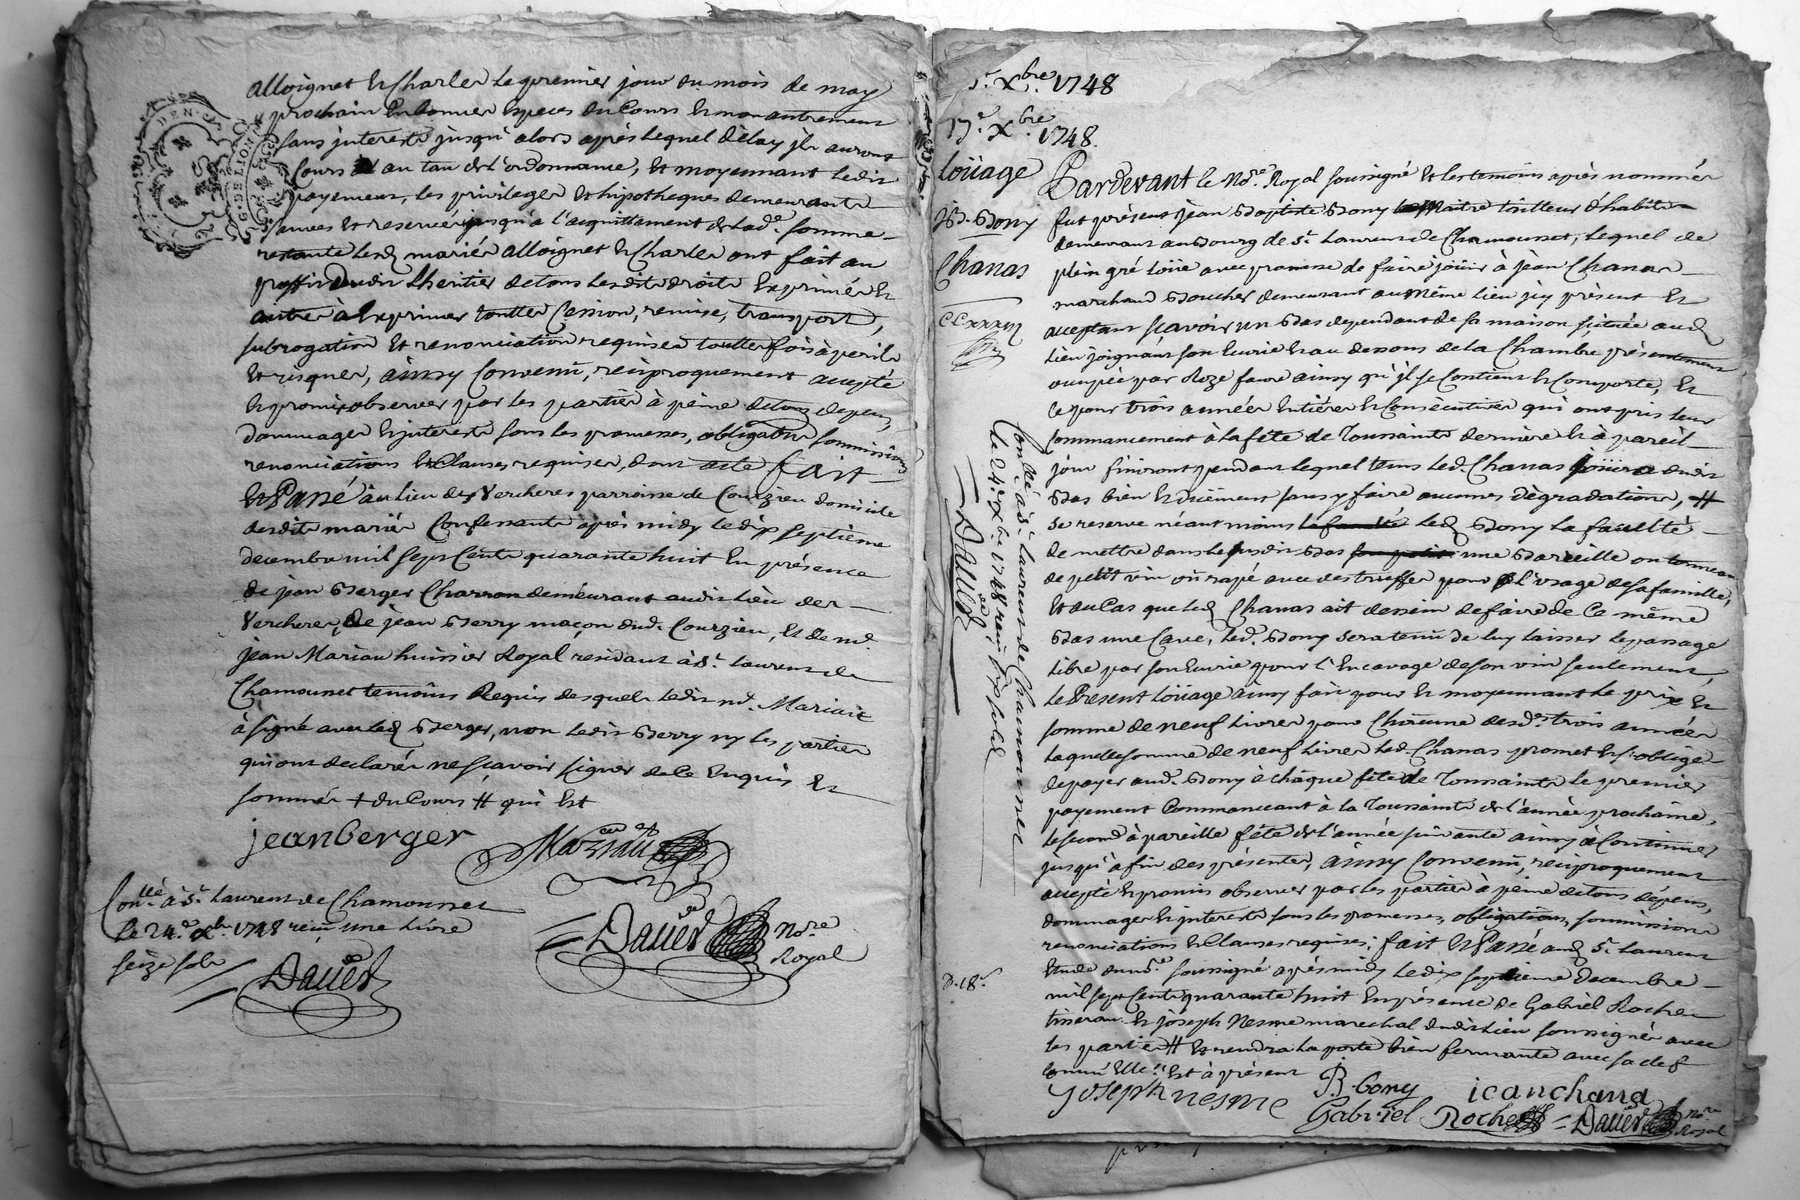 alloignet & Charles le premier jour du mois de may
prochain en bonnes especes du cours & non autrement
sans interests jusqu'alors après lequel délay ils auront
cours au tau de l'ordonnance, et moyennant ledit
payement, les privileges & hipotheques demeurants
et reservés jusqu'à l'acquittement de lad.e somme
restante lesd mariés alloignet & Charles ont fait au
proffit dudit Lheritier de tous lesdits droits exprimés &
autres à exprimer toutte Cession, remise, transport,
subrogation et renonciation requises touttefois à perils
et risques, ainsy Convenu, reciproquement accepté
& promis observer par les parties à peine de tous depens,
dommages & interests sous les promesses, obligations soumissions
renonciations & Clauses requises, dont acte fait
et Passé au lieu des Vercheres parroisse de Courzieu domicile
desdits mariés Confessants après midy le dix septième
decembre mil sept Cents quarante huit en présence
de jean Berger Charron demeurant audit lieu des
Vercheres, de jean Berry maçon dud. Courzieu, et de m.e
jean Mariau huissier Royal residant à S.t Laurent de
Chamousset temoins Requis desquels ledit m.e Mariau
à signé avec led Berger, non ledit Berry ny les parties
qui ont declarés ne scavoir signer de ce Enquis &
sommés + du Cours # qui est
jean berger
Mariau
Con.llé à S.t Laurent de Chamousset
le 24.e Xbre 1748 reçu une livre
seize sols
Dauet
Dauet No.re
Royal
DEN.
G. DE LION
X.bre 1748
17.e X.bre 1748.
loüage
JB. Bony
Chanas
CCXXXIII
Con.llé à S.t Laurent de Chamousset
le 24.e X.bre 1748 reçu sols
Dauet
D. 18.s
Pardevant le No.re Royal soussigné et les temoins après nommés
fut présent jean Baptiste Bony Maitre tailleur d'habits
demeurant au Bourg de S.t Laurent de Chamousset, lequel de
plein gré loüe avec promesse de faire joüir à jean Chanas
marchand Boucher demeurant au même lieu icy présent &
acceptant scavoir un Bas dependant de sa maison située aud
lieu joignant son Ecurie & au dessous de la Chambre présentement
occupée par Roze favre ainsy qu'il se Contient & Comporte, &
ce pour trois années Entières & Consécutives qui ont pris leur
commancement à la fête de Toussaints dernière & à pareil
jour finiront pendant lequel tems led. Chanas joüira dudit
Bas bien & düement sans y faire aucunes dégradations, #
se reserve néantmoins led Bony la faculté
de mettre dans le susdit Bas une Bareille ou tonneau
de petit vin ou rapé avec des truffes pour l'usage de sa famille,
et au Cas que led Chanas ait dessein de faire de ce même
Bas une Cave, led. Bony sera tenu de luy laisser le passage
libre par son Ecurie pour l'Encavage de son vin seulement,
le Présent loüage ainsy fait pour & moyennant le prix &
somme de neuf livres pour Chacune desd.es trois années
laquelle somme de neuf livres led. Chanas promet & s'oblige
de payer aud. Bony à chaque fête de Toussaints le premier
payement Commanceant à la Toussaints de l'année prochaine,
le second à pareille fête de l'année suivante ainsy à Continuer
jusqu'à fin des présentes, ainsy Convenu, reciproquement
accepté & promis observer par les parties à peine de tous dépens,
dommages & interests sous les promesses, obligations, soumissions
renonciations & Clauses requises; fait & Passé aud S.t Laurent
Etude du no.re soussigné après midy le dix septieme decembre
mil sept Cents quarante huit En présence de Gabriel Roche
tisseran & joseph Nesme marechal dudit lieu soussignés avec
les parties # & rendra la porte bien fermante avec sa clef
comm' elle est à présent
Joseph nesme
B. bony
jean chana
Gabriel Roche
Dauet No.re
Royal